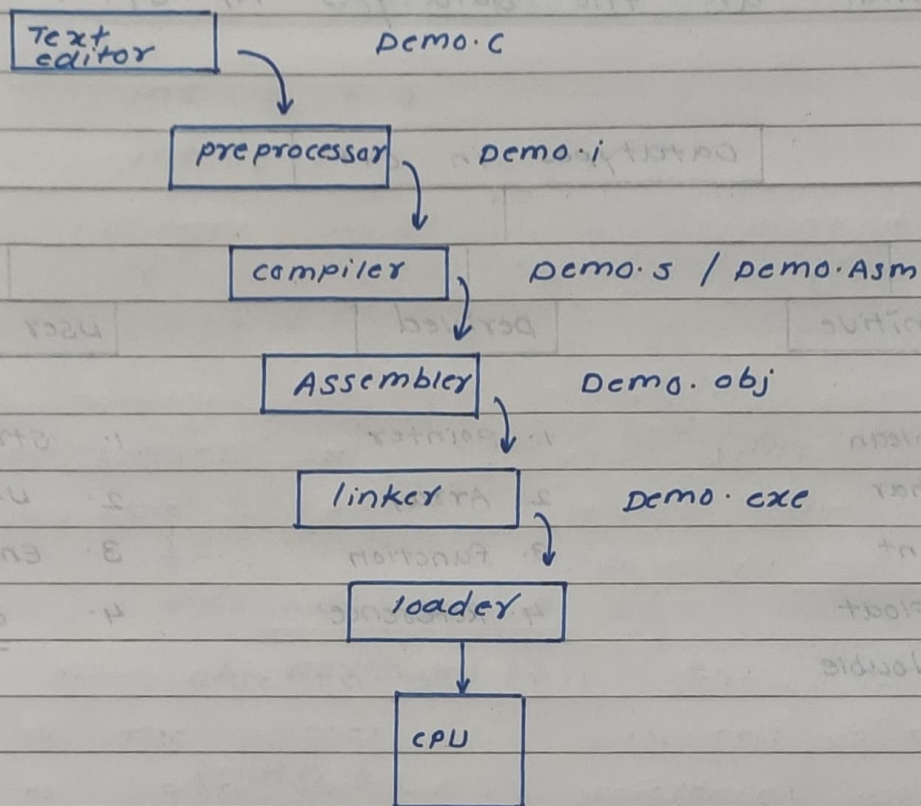 Text
editor
Demo.c
preprocessor
Demo.i
compiler
Demo.s / Demo.Asm
Assembler
Demo.obj
linker
Demo.exe
loader
CPU